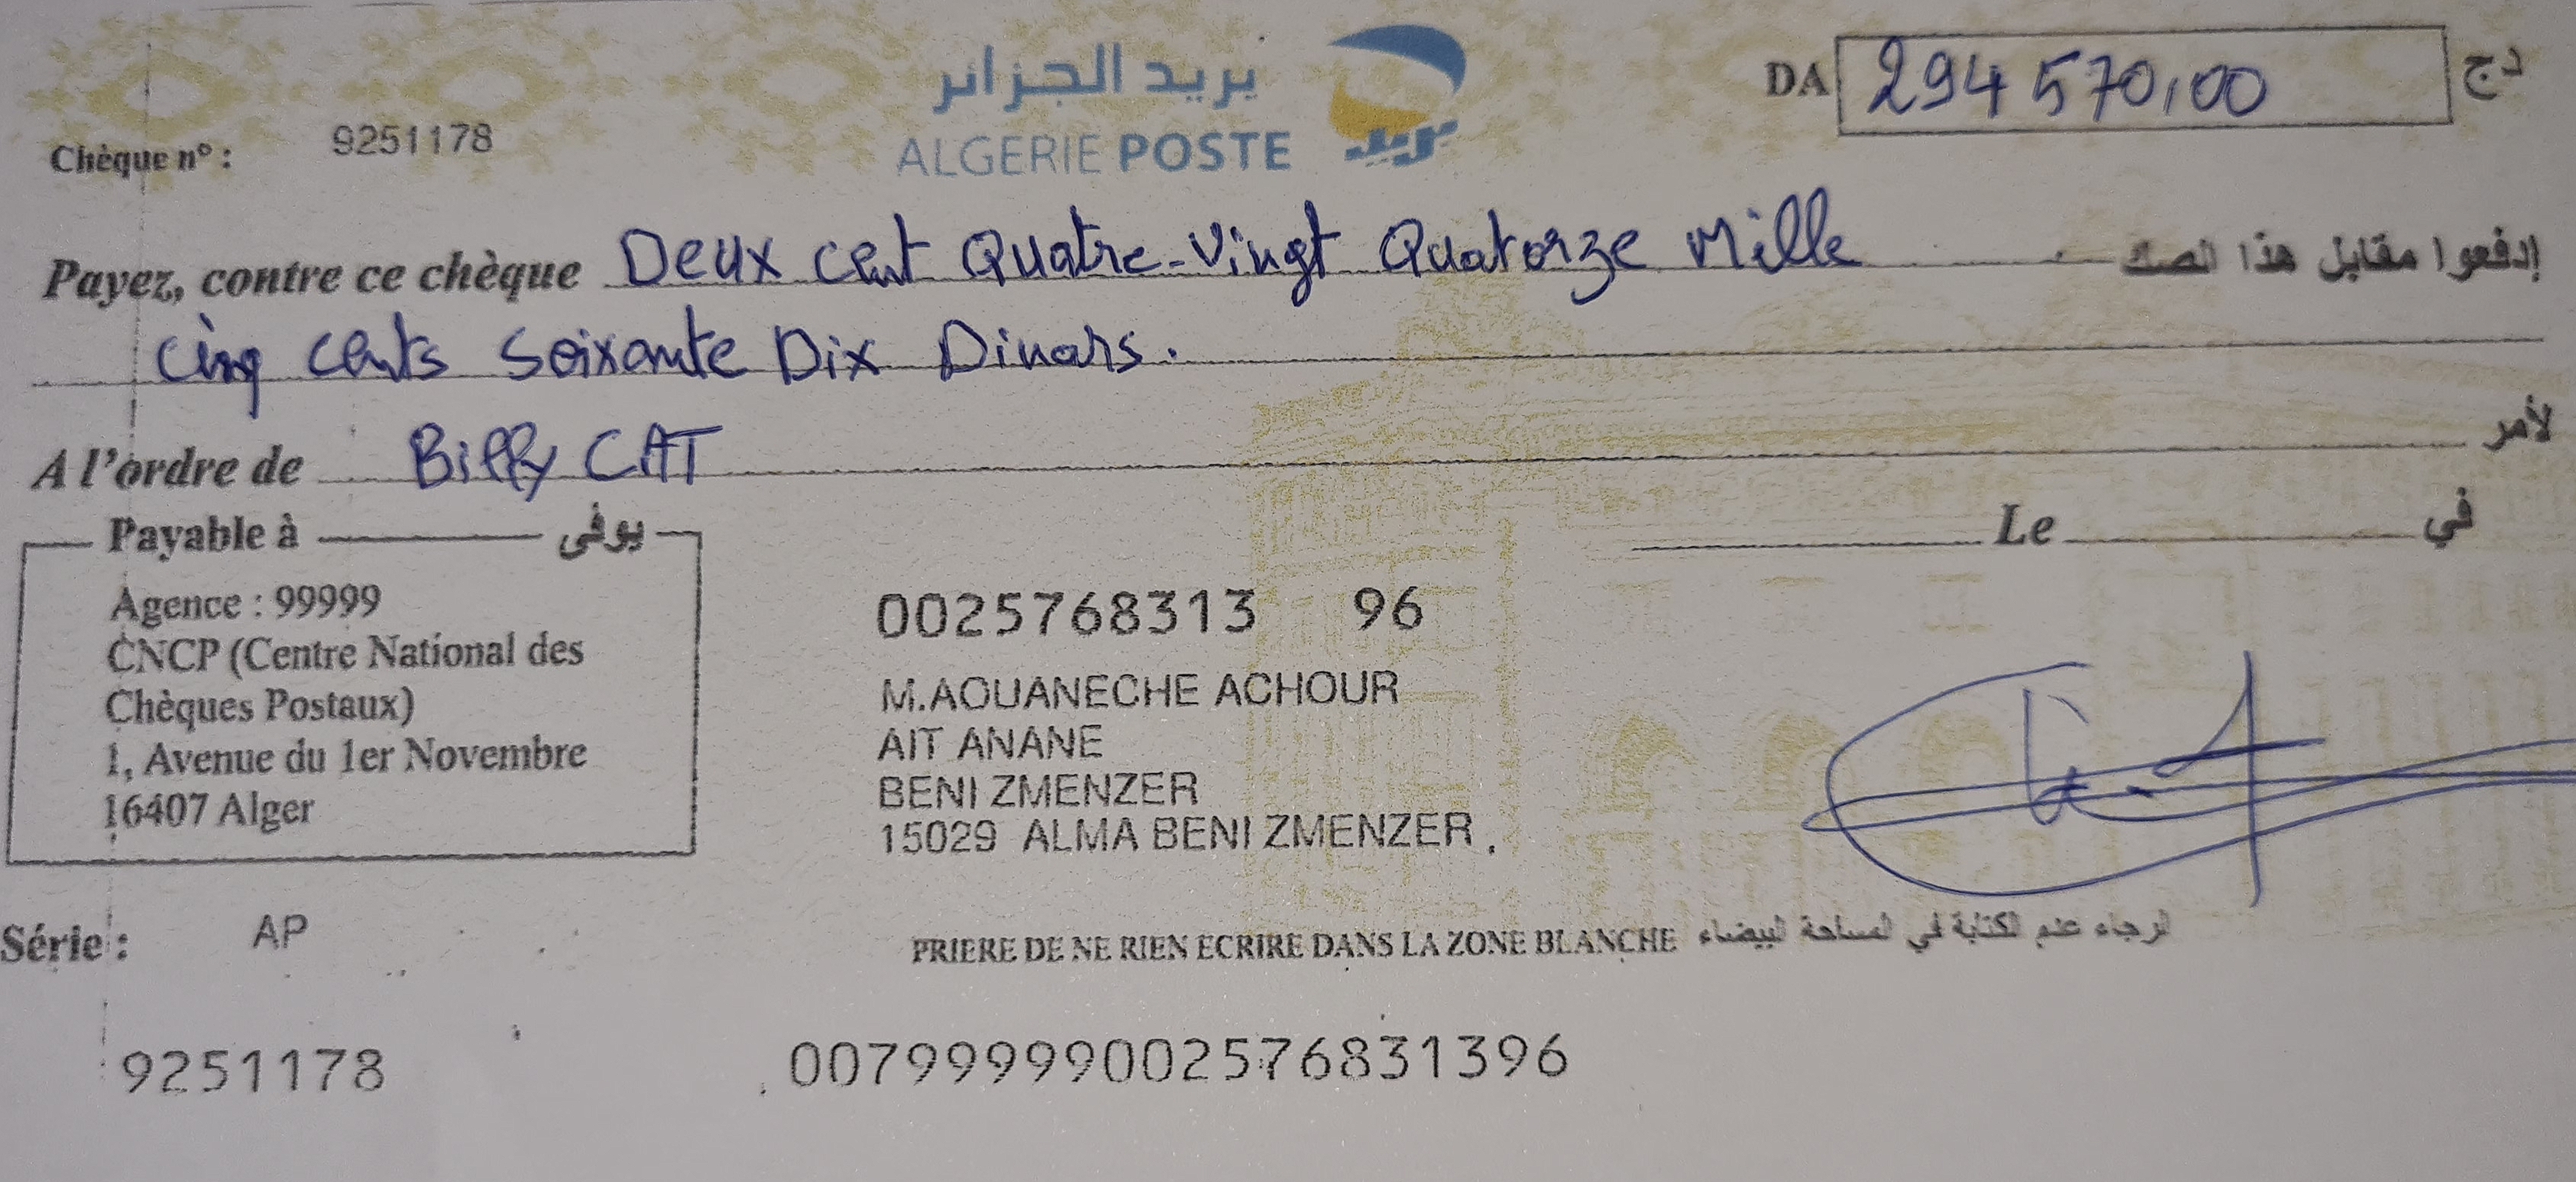 بريد الجزائر
ALGERIE POSTE
بريد
DA 294 570,00 دج
Chèque n° : 9251178
Payez, contre ce chèque Deux cent Quatre-Vingt Quatorze Mille إدفعوا مقابل هذا الصك
Cinq cents Soixante Dix Dinars.
A l'ordre de Billy CAT لأمر
Le في
Payable à يوفى
Agence : 99999
CNCP (Centre National des
Chèques Postaux)
1, Avenue du 1er Novembre
16407 Alger
0025768313 96
M.AOUANECHE ACHOUR
AIT ANANE
BENI ZMENZER
15029 ALMA BENI ZMENZER
Série : AP
PRIERE DE NE RIEN ECRIRE DANS LA ZONE BLANCHE الرجاء عدم الكتابة في المساحة البيضاء
9251178
00799999002576831396